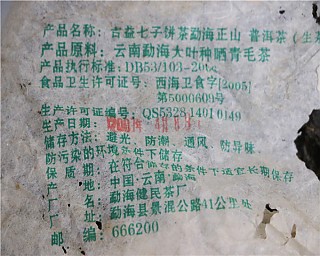 产品名称：吉益七子饼茶勐海正山 普洱茶（生茶
产品原料：云南勐海大叶种晒青毛茶
产品执行标准：DB53/103-200
食品卫生许可证号：西海卫食字[2005]
第5000609号
生产许可证编号：QS5328 1401 0149
生产日期：
储存方法：避光、防潮、通风、防异味、
防污染的环境条件下储存
保质期：在符合储存的条件下适宜长期保存
产 地：中国·云南·勐海
厂 名：勐海健民茶厂
厂 址：勐海县景混公路41公里处
邮 编：666200